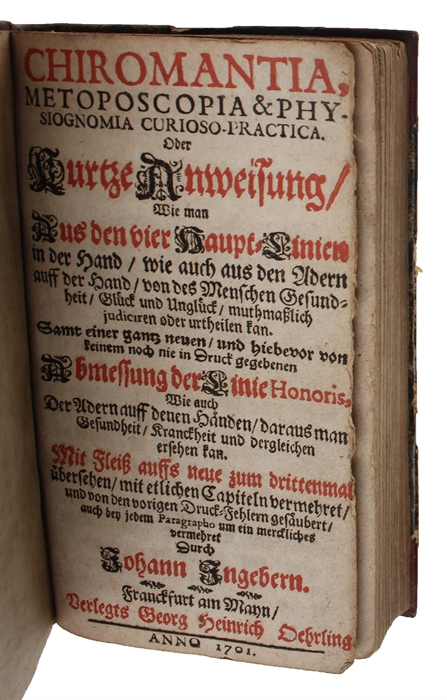 CHIROMANTIA,
METOPOSCOPIA & PHY-
SIOGNOMIA CURIOSO-PRACTICA.
Oder
Kurtze Anweisung/
Wie man
Aus den vier Haupt-Linien
in der Hand / wie auch aus den Adern
auff der Hand / von des Menschen Gesund-
heit / Glück und Unglück / muthmaßlich
judiciren oder urtheilen kan.
Samt einer gantz neuen / und hiebevor von
keinem noch nie in Druck gegebenen
Abmessung der Linie Honoris,
Wie auch
Der Adern auff denen Händen / daraus man
Gesundheit / Kranckheit und dergleichen
ersehen kan.
Mit Fleiß auffs neue zum drittenmal
übersehen / mit etlichen Capiteln vermehret /
und von den vorigen Druck-Fehlern gesäubert /
auch bey jedem Paragrapho um ein merckliches
vermehret
Durch
Johann Ingebern.
Franckfurt am Mayn /
Verlegts Georg Heinrich Oehrling.
ANNO 1701.